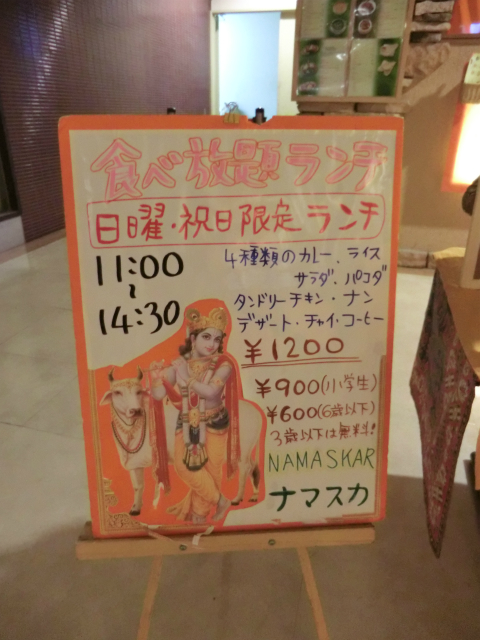 食べ放題ランチ
日曜・祝日限定ランチ
11:00
~
14:30
4種類のカレー、ライス
サラダ、パコダ
タンドリーチキン・ナン
デザート・チャイ・コーヒー
¥1200
¥900(小学生)
¥600(6歳以下)
3歳以下は無料!
NAMASKAR
ナマスカ